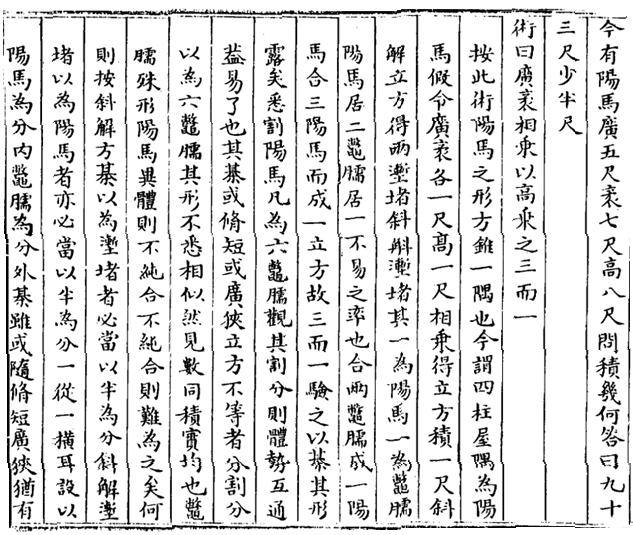 今有陽馬廣五尺袤七尺高八尺問積幾何荅曰九十
三尺少半尺
術曰廣袤相乗以高乗之三而一
按此術陽馬之形方錐一隅也今謂四柱屋隅為陽
馬假令廣袤各一尺髙一尺相乗得立方積一尺斜
解立方得兩壍堵斜斛壍堵其一為陽馬一為鼈臑
陽馬居二鼈臑居一不易之率也合兩鼈臑成一陽
馬合三陽馬而成一立方故三而一驗之以棊其形
露矣悉割陽馬凡為六鼈臑觀其割分則體勢互通
葢易了也其棊或脩短或廣狹立方不等者分割分
以為六鼈臑其形不悉相似然見數同積實均也鼈
臑殊形陽馬異體則不純合不純合則難為之矣何
則按斜解方棊以為壍堵者必當以半為分斜解壍
堵以為陽馬者亦必當以半為分一從一横耳設以
陽馬為分内鼈臑為分外棊雖或隨脩短廣狹猶有